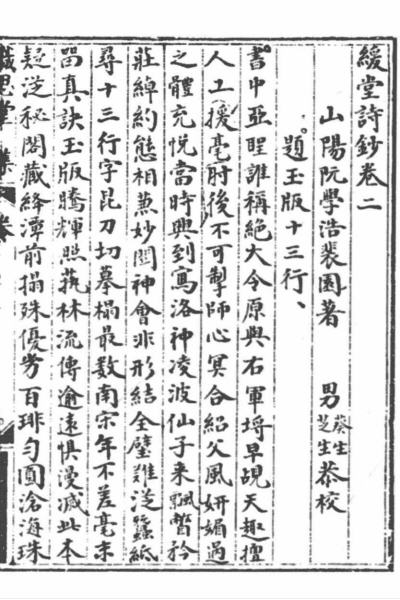 緩堂詩鈔卷二
山陽阮學浩裴園著 男葵生芝生恭校
題玉版十三行
書中亞聖誰稱絕大令原與右軍埓早覘天趣擅
人工援毫肘後不可掣師心冥合紹父風妍媚過
之體充悅當時興到寫洛神凌波仙子来飄瞥矜
莊綽約態相兼妙闓神會非形結全璧難從蠶紙
尋十三行字昆刀切摹榻最數南宋年不差毫末
留真訣玉版騰輝照藝林流傳逾遠惧漫滅此本
疑從秘閣藏絳潭前搨殊優劣百琲勻圓滄海珠